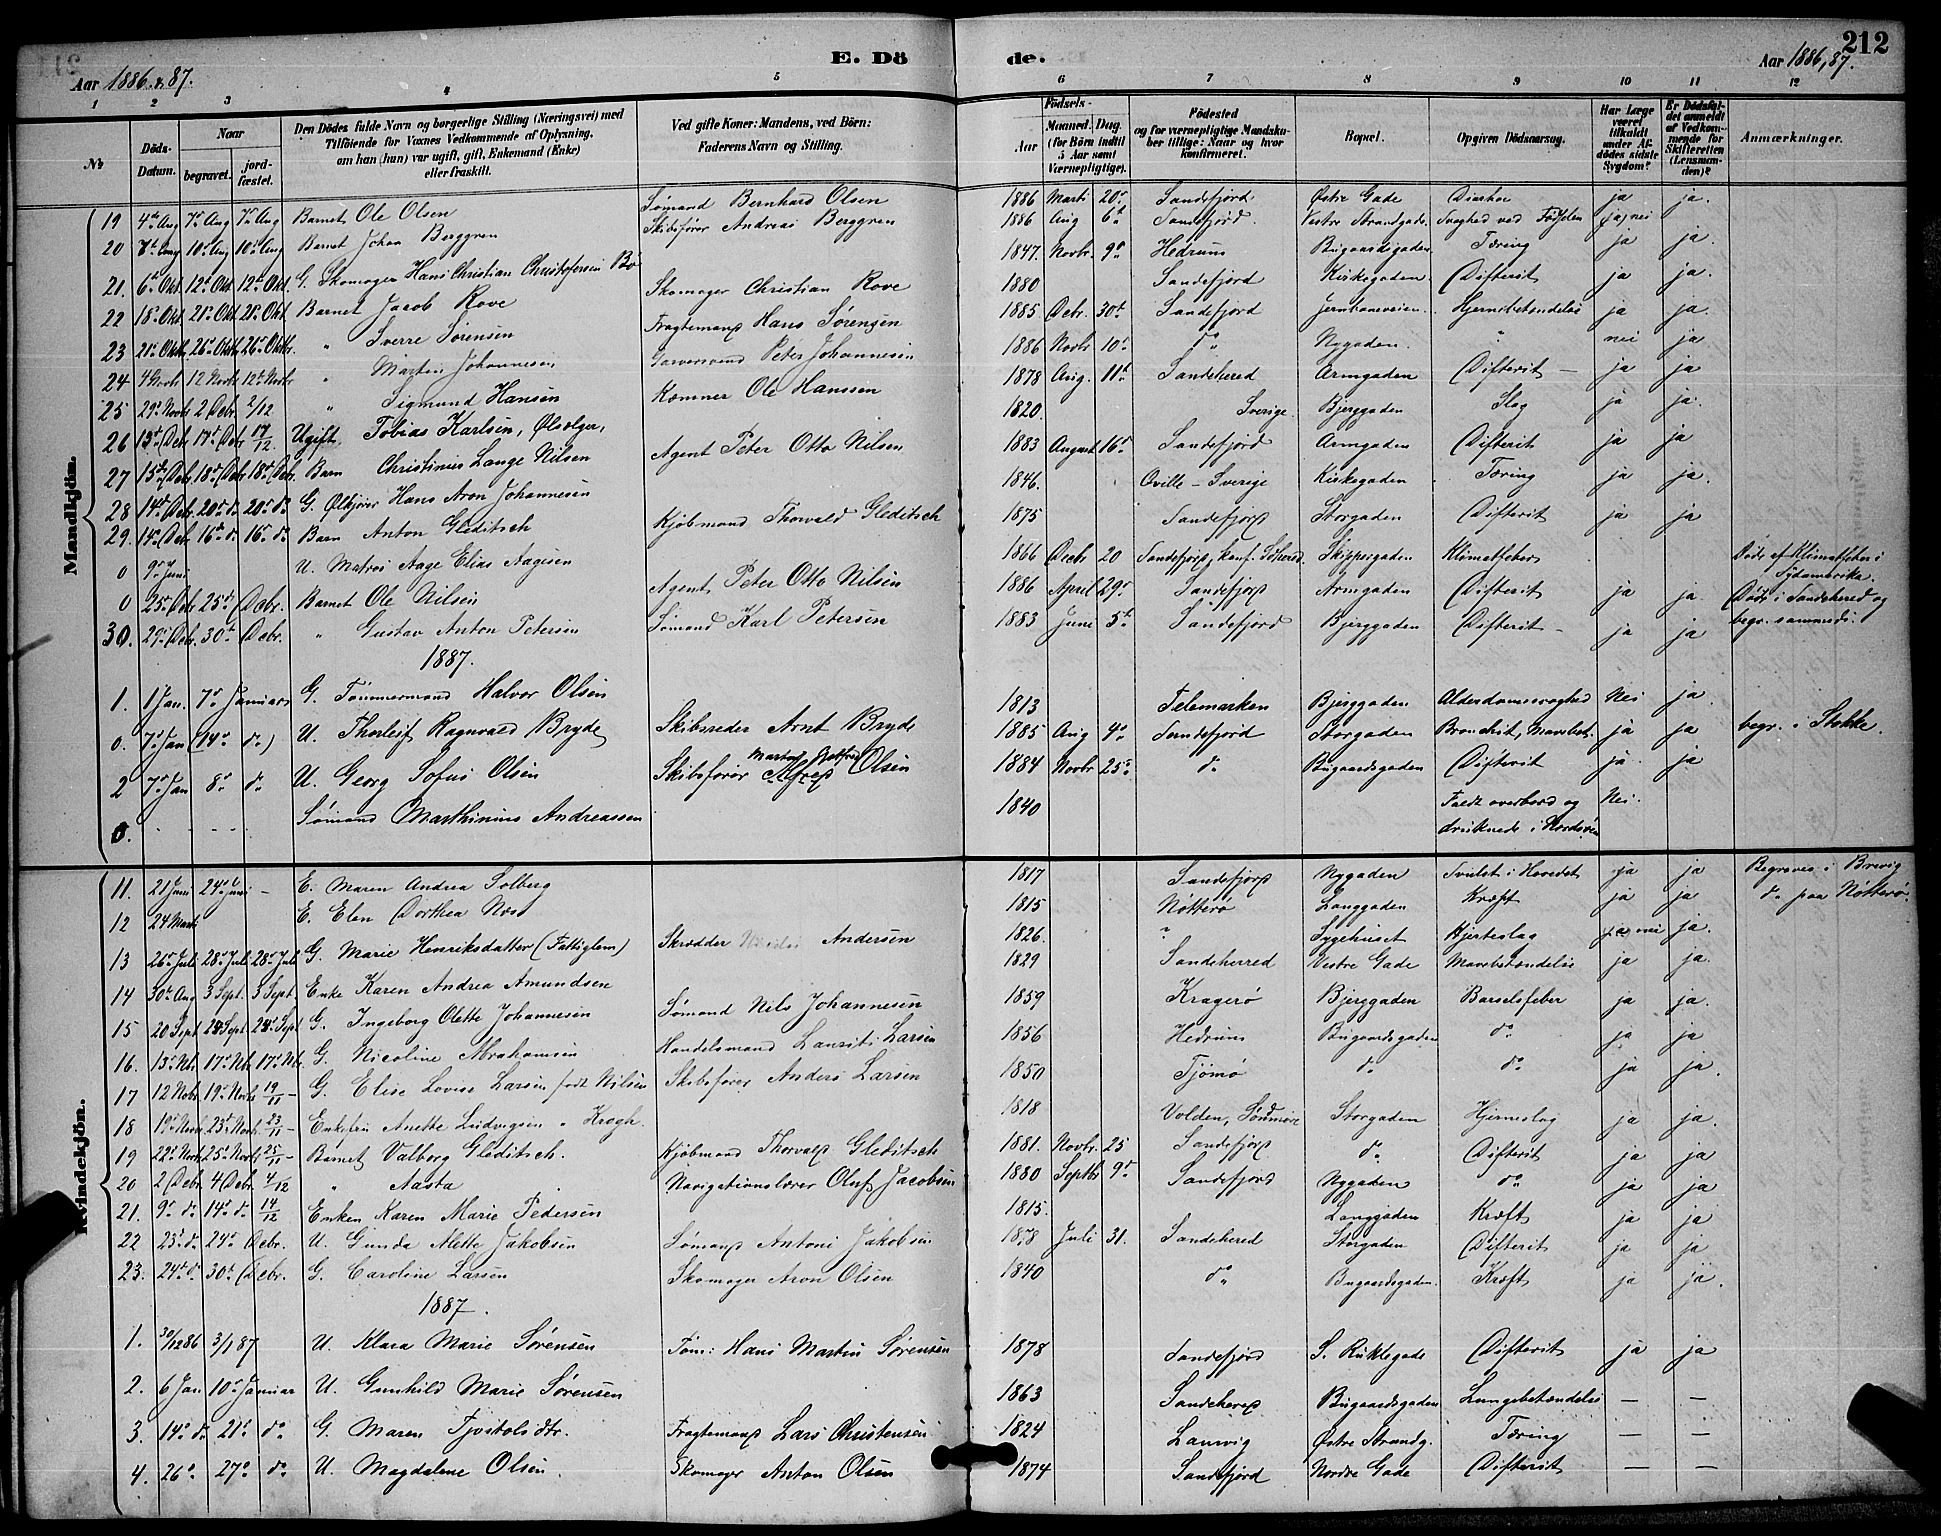 E. Dö de. 212
Aar 1886 & 87. Aar 1886, 87.
1 2 3 4 5 6 7 8 9 10 11 12
№ Döds-Datum. Naar begravet. jordfæstet. Den Dödes fulde Navn og borgerlige Stilling (Næringsvei) med Tilföiende for Voxnes Vedkommende af Oplysning, om han (hun) var ugift, gift, Enkemand (Enke) eller fraskilt. Ved gifte Koner: Mandens, ved Börn: Faderens Navn og Stilling. Födsels- Aar Maaned. Dag. (for Börn indtil 5 Aar samt Værnepligtige). Födested og for værnepligtige Mandskaber tillige: Naar og hvor konfirmeret. Bopæl. Opgiven Dödsaarsag. Har Læge været tilkaldt under Afdödes sidste Sygdom? Er Dödsfaldet anmeldt af Vedkommende for Skifteretten (Lensmanden)? Anmærkninger.
Mandkjön.
19 4de Aug 7de Aug 7de Aug Barnet Ole Olsen Sømand Bernhard Olsen 1886 Marti 20de Sandefjord Østre Gade Diarhoe ja ja.
20 7de Aug 10de Aug 10de Aug Barnet Johan Berggren Skibsfører Andreas Berggren 1886 Aug 6te Sandefjord Vestre Strandgade Svaghed ved Fødselen ja, nei
21. 6te Okt 12te Okt 12te Okt. G. Skomager Hans Christian Christofersen Bø 1847. Novbr. 9de Hedrum Bugaardsgaden Tæring ja ja.
22 18de Okt 21de Okt 21de Okt Barnet Jacob Rove Skomager Christian Rove 1880 Sandefjord Kirkegaden Difterit ja ja.
23 21de Oktbr 26de Oktbr 26de Oktbr. " Sverre Sørensen Fragtemand Hans Sørensen 1885 Debr. 30te Sandefjord Jernbaneveien Hjernebetændelse ja ja
24 4 Novb 12 Novbr 12te Novbr " Morten Johannesen Garversvend Peter Johannesen 1886 Novbr 10de do Nygaden. " nei ja
25 29de Novbr 2 Debr. 2/12 " Sigmund Hansen Kæmner Ole Hanssen 1878 Aug. 11te Sandeherred Armgaden Difterit ja ja
26 13de Debr 17de Debr 17/12 Ugift Tobias Karlsen, Ølsælger, 1820. Sverige Bjerggaden Slag ja ja.
27 15de Debr 18de Debr 18de Debr. Barn Christinius Lange Nilsen Agent Peter Otto Nilsen 1883 August 16de Sandefjord Armgaden Difterit ja ja
28 14de Debr 20de do 20de do G. Ølkjører Hans Aron Johannesen 1846. Oville - Sverige Kirkegaden Tæring ja ja
29. 14de Debr 16de do 16de do Barn Anton Gleditsch Kjøbmand Thorvald Gleditsch 1875 Sandefjord Storgaden Difterit ja ja
0 9de Juni U. Matros Aage Elias Aagesen 1866 Decbr 20 Sandefjord, konf. S.herred Skippergaden Klimatfeber Døde af Klimatfeber i Sydamerika.
0 25de Debr 25de Debr. Barnet Ole Nilsen Agent Peter Otto Nilsen 1886 April 29de Sandefjord Armgaden Difterit ja ja. Døde i Sandeherred og begr. sammeds.
30. 29de Debr. 30te Debr. " Gustav Anton Petersen Sømand Karl Petersen 1883 Juni 5te Sandefjord Bjerggaden Difterit ja ja
1887.
1. 1 Jan. 7de Januar G. Tømmermand Halvor Olsen 1813 Telemarken Bjerggaden Alderdomssvaghed Nei ja
0. 7de Jan (14de do) U. Thorleif Ragnvald Bryde Skibsreder Arnt Bryde 1885 Aug 4de Sandefjord Storgaden Bronchit, Mavebet. ja ja begr. i Stokke.
2 7de Jan 8de do U. Georg Sofus Olsen Skibsfører Alfred Olsen 1884 Novbr. 25de do Bugaardsgaden Difterit ja ja
0. Sømand Marthinius Andreassen 1840 Faldt overbord og druknede i Nordsøen Nei.
Kvindekjön.
11. 21 Juni 24de Juni - E. Maren Andrea Solberg 1817 Sandefjord Nygaden Svulst i Hovedet ja ja Begraves i Brevig
12 24 Marts E. Elen Dorthea Næss 1815 Nötterö Langgaden Kræft ja ja do paa Nötterö.
13 26de Juli 28de Juli 28de Juli G. Marie Henriksdatter (Fattiglem) Skrædder Andersen 1826. ? Sygehuset Hjerteslag ja nei ja.
14 30te Aug 3 Sept. 3 Sept. Enke Karen Andrea Amundsen 1829 Sandeherred Vestre Gade Mavebetændelse ja ja.
15 20 Sept 24 Sept. 24de Sept G. Ingeborg Olette Johannesen Sømand Nils Johannesen 1859 Kragerø Bjerggaden Barselsfeber ja ja.
16. 13de Nbr 17de Nbr 17de Nbr. G. Nicoline Abrahamsen Handelsmand Laurits Larsen 1856 Hedrum Bugaardsgaden do ja ja
17 12 Nobr 19de Novbr 19/11 - G. Elise Lovise Larsen født Nilsen Skibsfører Anders Larsen 1850 Tjømø do do ja ja.
18 19de Novbr. 23de Novbr. 23/11 - Enkefru Anette Ludvigsen " Krogh. 1818 Volden, Søndmøre Storgaden Hjerneslag ja ja.
19 22de Novbr 25de Novbr. 25/11 - Barnet Valborg Gleditsch. Kjøbmand Thorvald Gleditsch 1881. Novbr. 25 Sandefjord do Difterit ja ja
20 2 Debr. 4 Debr. 4/12 " Aasta Navigationslærer Oluf Jacobsen 1880 Septbr 9de Sandefjord Nygaden do ja ja
21. 9de do 14de do 14/12 Enken Karen Marie Pedersen 1815. Langgaden Kræft ja ja
22 23de do 24de Debr. U. Gunda Alette Jakobsen Sømand Antoni Jakobsen 1878 Juli 31. Sandeherred Storgaden Difterit ja ja
23. 24de do 30te Debr. G. Caroline Larsen Skomager Aron Olsen 1840 do Bugaardsgaden. Kræft ja ja.
1887.
1. 30/12 86 3/1 87 U. Klara Marie Sørensen Tøm: Hans Martin Sørensen 1878 Sandefjord S. Rukklegade Difterit ja ja
2. 6 Jan 10de Januar U. Gunhild Marie Sørensen 1863 Sandeherred Bugaardsgaden Lungebetændelse — —
3. 14de do 21de do G. Maren Fjostolsdtr. Fragtemand Lars Christensen 1824 Laurvig Østre Strandg. Tæring — —
4. 26de 27de do U. Magdalene Olsen. Skomager Anton Olsen 1874 Sandefjord Nordre Gade Difterit — —